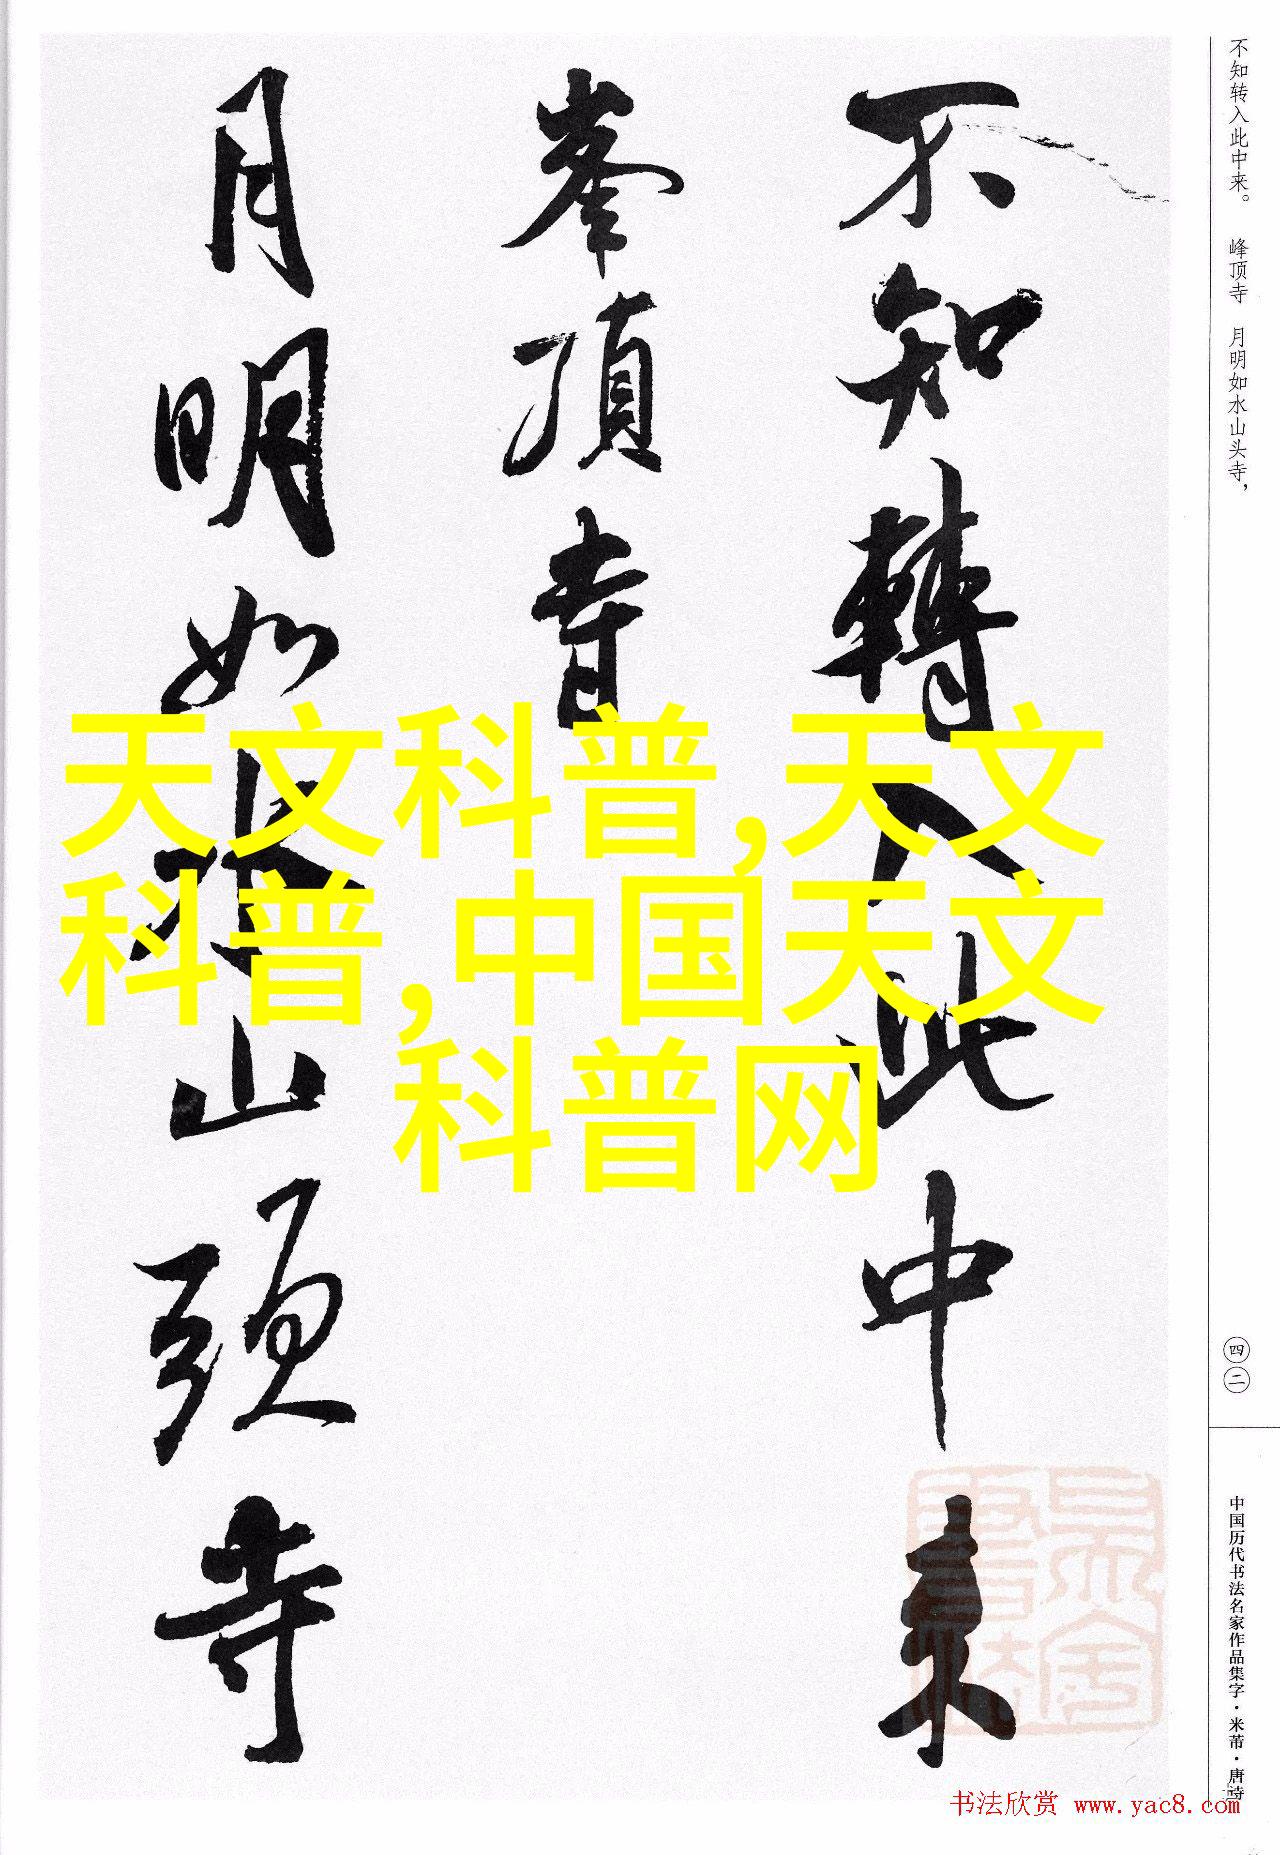 不知轉入此中來
峯頂寺
月明如水山頭寺
不知转入此中来。 峰顶寺 月明如水山头寺，
四二
中国历代书法名家作品集字·米芾·唐诗
天文科普,天文
科普,中国天文
科普网
书法欣赏 www.yac8.com